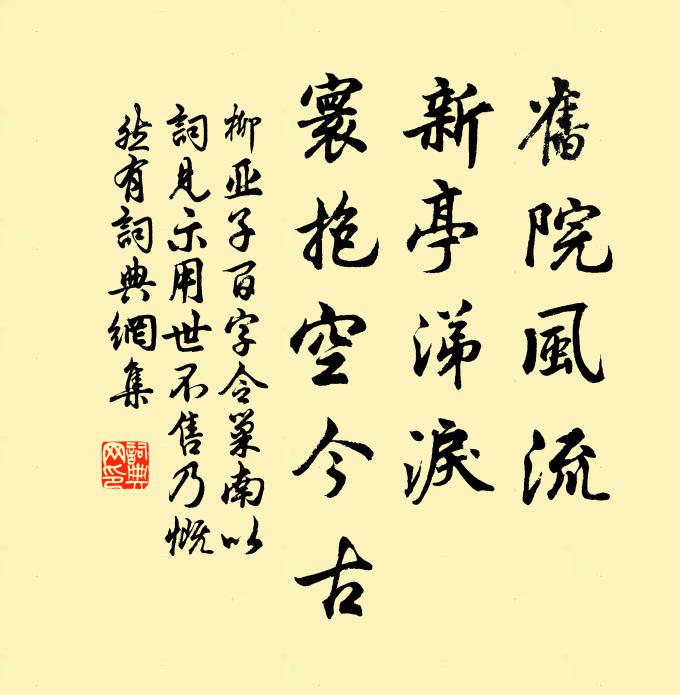 舊院風流
新亭涕淚
寰抱空今古
柳亚子百字令巢南以
詞見示用世不售乃慨
然有詞典網集
詞典
网印